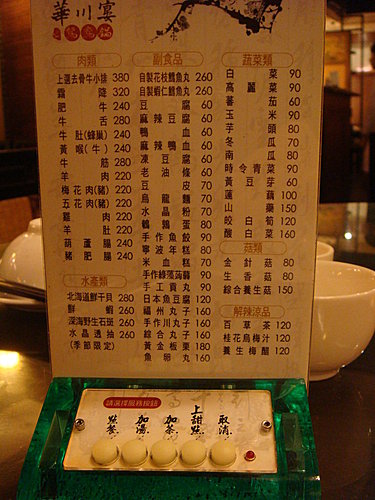 華川宴
肉類
上選去骨牛小排 380
霜降 320
肥牛 240
牛舌 280
牛肚(蜂巢) 240
黃喉(牛) 240
牛筋 280
羊肉 220
梅花肉(豬) 220
五花肉(豬) 220
雞肉 220
羊肚 220
葫蘆腸 240
豬肥腸 240
水產類
北海道鮮干貝 280
鮮蝦 260
深海野生石斑 260
水晶透抽 260
(季節限定)
副食品
自製花枝鱈魚丸 260
自製蝦仁鱈魚丸 260
豆腐 60
麻辣豆腐 60
鴨血 60
麻辣鴨血 60
凍豆腐 60
老油條 60
豆皮 70
烏龍麵 70
水晶粉 70
鵪鶉蛋 80
手作魚餃 90
寧波年糕 60
米血糕 70
手作綠藻蒟蒻 90
手工貢丸 90
日本魚豆腐 120
福州丸子 140
手作川丸子 140
綜合丸子 140
黃金板果 180
魚卵丸 160
蔬菜類
白菜 90
高麗菜 90
蕃茄 60
玉米 90
芋頭 80
冬瓜 70
南瓜 80
時令青菜 90
黃豆芽 60
蓮藕 100
山藥 150
皎白筍 120
酸白菜 160
菇類
金針菇 80
生香菇 80
綜合養生菇 150
解辣涼品
百草茶 120
桂花烏梅汁 120
養生梅醋 120
請選擇服務按鈕
點餐
加湯
加茶
上甜點
取消